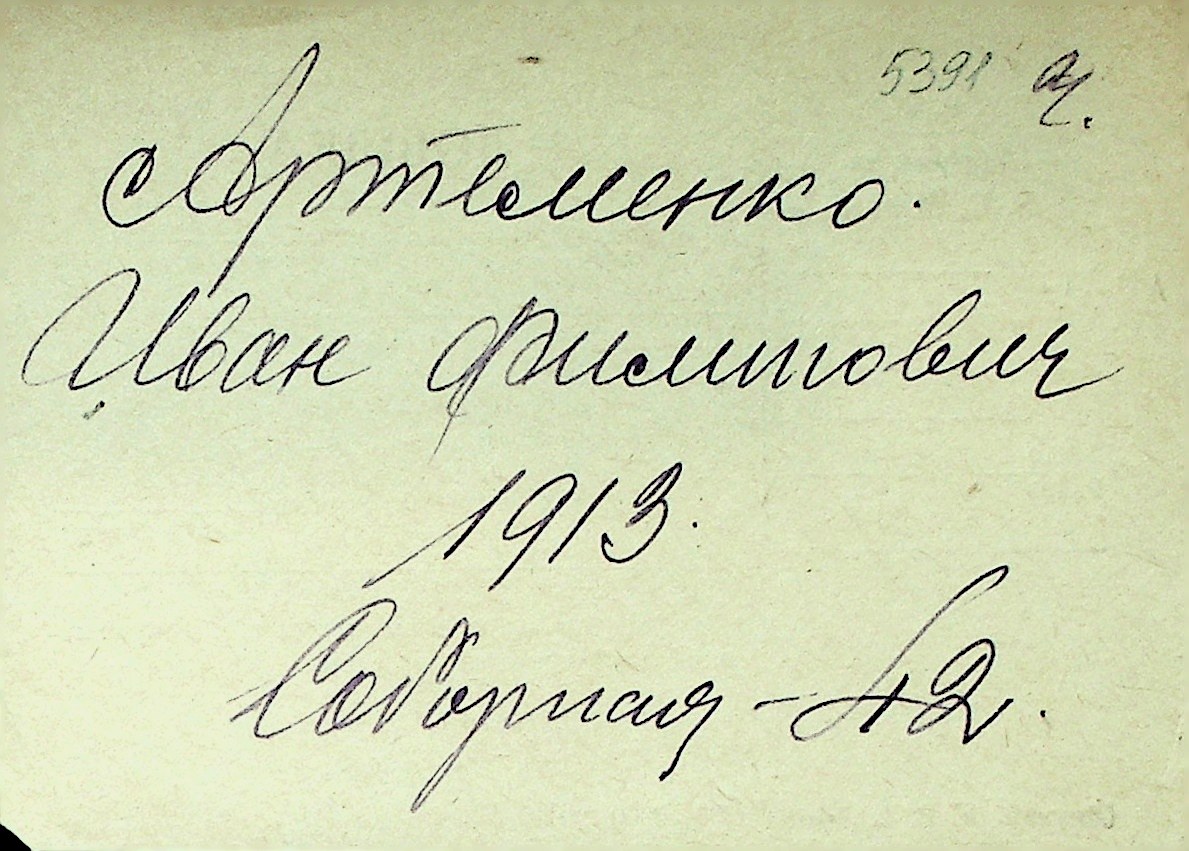 5391 ч.
Артеменко.
Иван Филипович
1913.
Соборная - 42.